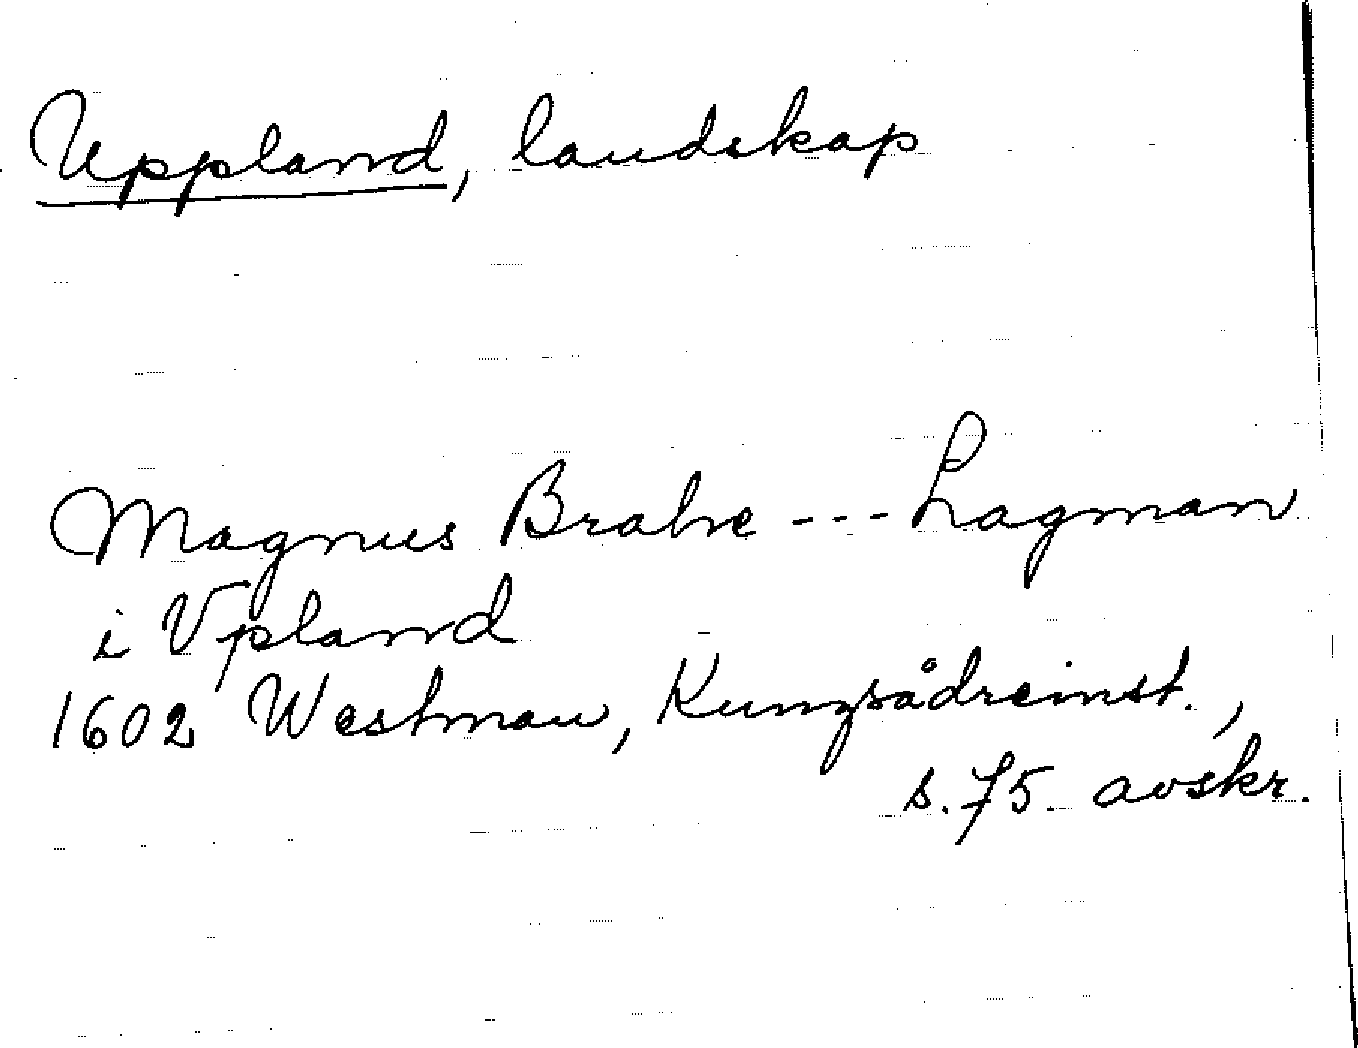 Uppland, landskap
Magnus Brahe --- Lagman
i Vpland
1602 Westman, Kungsådreinst.,
s. 75. avskr.